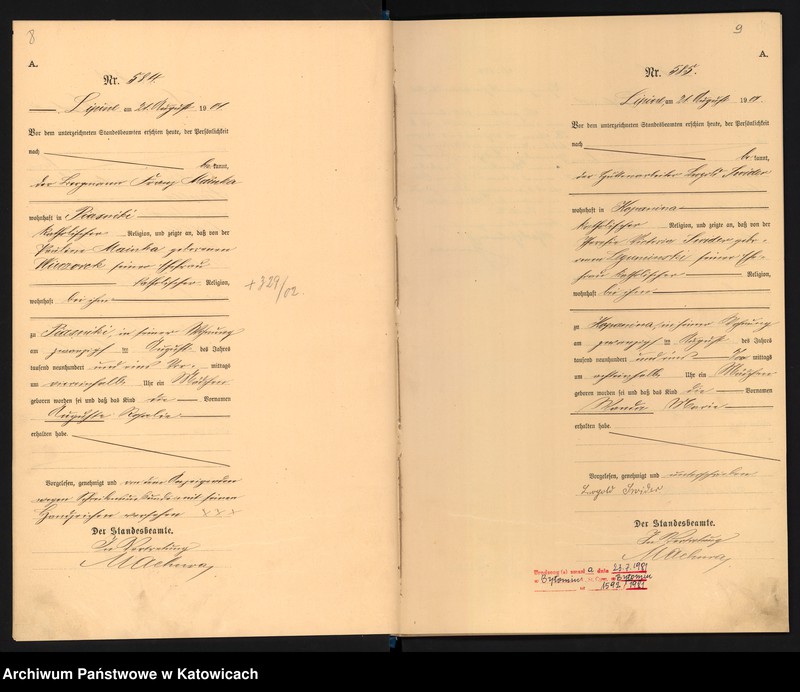 8
A.
Nr. 584.
Lipine am 21. August 1901
Vor dem unterzeichneten Standesbeamten erschien heute, der Persönlichkeit
nach
be kannt,
der Bergmann Franz Mainka
wohnhaft in Piasniki
katholischer Religion, und zeigte an, daß von der
Mainka geborenen
Wieczorek seiner Ehefrau
katholischer Religion,
wohnhaft bei ihm
+ 329/02.
zu Piasniki, in seiner Wohnung
am zwanzigsten August des Jahres
tausend neunhundert und eins Vor mittags
um viereinhalb Uhr ein Mädchen
geboren worden sei und daß das Kind die Vornamen
Auguste Rosalie
erhalten habe.
Vorgelesen, genehmigt und von dem Anzeigenden
wegen Schreibensunkunde mit seinen
Handzeichen versehen + + +
Der Standesbeamte.
In Vertretung
9
A.
Nr. 585.
Lipine, am 21. August 1901.
Vor dem unterzeichneten Standesbeamten erschien heute, der Persönlichkeit
nach
be kannt,
der Hüttenarbeiter Leopold Swider
wohnhaft in Kopanina
katholischer Religion, und zeigte an, daß von der
Victoria Swider gebo-
renen seiner Ehe-
frau katholischer Religion,
wohnhaft bei ihm
zu Kopanina, in seiner Wohnung
am zwanzigsten August des Jahres
tausend neunhundert und eins Vor mittags
um achteinhalb Uhr ein Mädchen
geboren worden sei und daß das Kind die Vornamen
Wanda Marie
erhalten habe.
Vorgelesen, genehmigt und unterschrieben
Leopold Swider
Der Standesbeamte.
In Vertretung
a dnia 23.7.1981
w Bytomiu Bytomiu
nr 1592/1981
Archiwum Państwowe w Katowicach